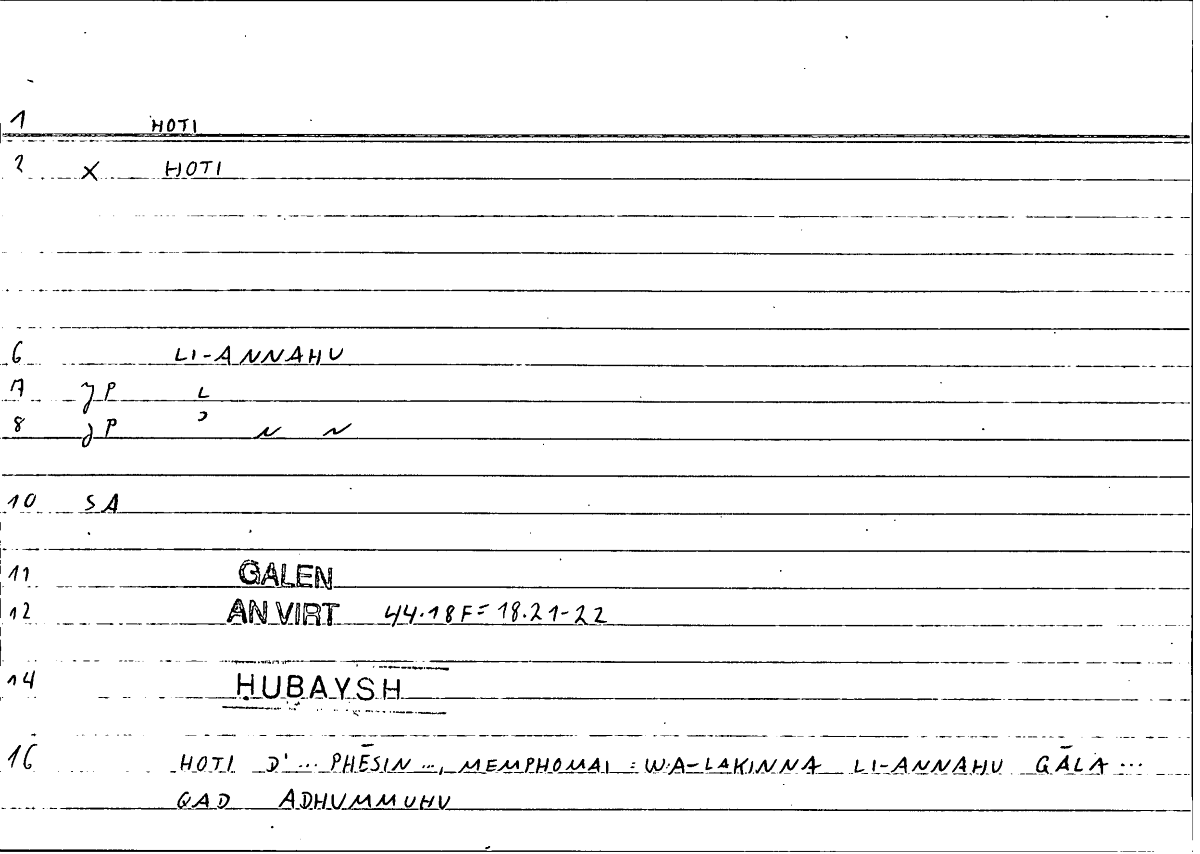 1 HOTI
2 X HOTI
6 LI-ANNAHU
7 P L
8 P ʾ N N
10 SA
11 GALEN
12 AN VIRT 44.18F = 18.21-22
14 ḤUBAYSH
16 HOTI D' ... PHĒSIN ..., MEMPHOMAI : WA-LAKINNA LI-ANNAHU QĀLA ...
QAD ADHUMMUHU